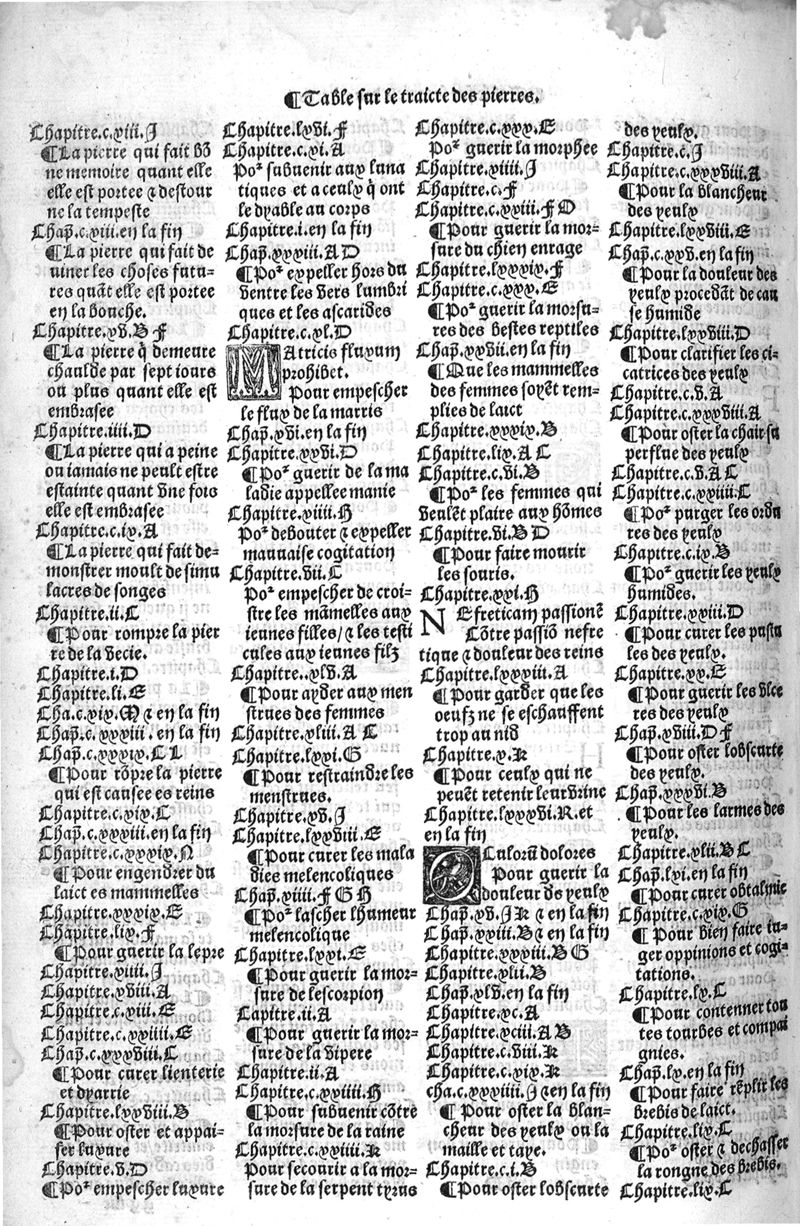 ¶Table sur le traicte des pierres.
Chapitre.c.xiii.J
¶La pierre qui fait bõ
ne memoire quant elle
elle est portee ⁊ destour
ne la tempeste
Chap̃.c.xiii.en la fin
¶La pierre qui fait de
uiner les choses futu-
res quãt elle est portee
en la bouche.
Chapitre.xv.B F
¶La pierre q̃ demeure
chaulde par sept iours
ou plus quant elle est
embrasee
Chapitre.iiii.D
¶La pierre qui a peine
ou iamais ne peult estre
estainte quant vne fors
elle est embrasee
Chapitre.c.ix.A
¶La pierre qui fait de-
monstrer moult de simu
lacres de songes
Chapitre.ii.C
¶Pour rompre la pier
re de la vecie.
Chapitre.i.D
Chapitre.li.E
Cha.c.xix.M ⁊ en la fin
Chap̃.c.xxiii.en la fin
Chap̃.c.xxxix.C L
¶Pour rõpre la pierre
qui est causee es reins
Chapitre.c.xix.C
Chap̃.c.xxxiii.en la fin
Chapitre.c.xxxix.N
¶Pour engendrer du
laict es mammelles
Chapitre.xxxix.E
Chapitre.lix.F
¶Pour guerir la lepre
Chapitre.xiiii.J
Chapitre.xviii.A
Chapitre.c.xiii.E
Chapitre.c.xxiiii.E
Chap̃.c.xxviii.C
¶Pour curer lienterie
et dyarrie
Chapitre.lxxviii.B
¶Pour oster et appai-
ser luxure
Chapitre.v.D
¶Poᷣ empescher luxure
Chapitre.lxvi.F
Chapitre.c.xi.A
Poᷣ subuenir aux luna
tiques et a ceulx q̃ ont
le dyable au corps
Chapitre.i.en la fin
Chap̃.xxxiii.A D
¶Poᷣ expeller hors du
ventre les vers lumbri
ques et les ascarides
Chapitre.c.xl.D
MAtricis fluxum
prohibet.
¶Pour empescher
le flux de la marris
Chap̃.xvi.en la fin
Chapitre.xxvi.D
¶Poᷣ guerir de la ma
ladie appellee manie
Chapitre.xiiii.H
Poᷣ debouter ⁊ expeller
mauuaise cogitation
Chapitre.vii.C
Poᷣ empescher de croi-
stre les mãmelles aux
ieunes filles/⁊ les testi
cules aux ieunes filz
Chapitre..xlv.A
¶Pour ayder aux men
strues des femmes
Chapitre.xliii.A C
Chapitre.lxxi.G
¶Pour restraindre les
menstrues.
Chapitre.xv.J
Chapitre.lxxviii.E
¶Pour curer les mala
dies melencoliques
Chap̃.xiiii.F G H
¶Poᷣ lascher lhumeur
melencolique
Chapitre.lxxi.E
¶Pour guerir la mor-
sure de lescorpion
Capitre.ii.A
¶Pour guerir la mor-
sure de la vipere
Chapitre.ii.A
Chapitre.c.xxiiii.H
¶Pour subuenir cõtre
la morsure de la raine
Chapitre.c.xxiiii.K
Pour secourir a la mor-
sure de la serpent tyrus
Chapitre.c.xxx.E
Poᷣ guerir la morphee
Chapitre.xiiii.J
Chapitre.c.F
Chapitre.c.xxiii.F O
¶Pour guerir la mor-
sure du chien enrage
Chapitre.lxxxix.F
Chapitre.c.xxx.E
¶Poᷣ guerir la morsu-
res des bestes reptiles
Chap̃.xxvii.en la fin
¶Que les mammelles
des femmes soyẽt rem-
plies de laict
Chapitre.xxxix.B
Chapitre.lix.A C
Chapitre.c.vi.B
¶Poᷣ les femmes qui
veulẽt plaire aux hõmes
Chapitre.vi.B D
¶Pour faire mourir
les souris.
Chapitre.xvi.H
NEfreticam passionẽ
Cõtre passiõ nefre
tique ⁊ douleur des reins
Chapitre.lxxxiii.A
¶Pour garder que les
oeufz ne se eschauffent
trop au nid
Chapitre.x.K
¶Pour ceulx qui ne
peuẽt retenir leur vrine
Chapitre.lxxxvi.R.et
en la fin
OCulorũ dolores
Pour guerir la
douleur ds yeulx
Chap̃.xv.J K ⁊ en la fin
Chap̃.xxiii.B ⁊ en la fin
Chapitre.xxxiii.B G
Chapitre.xlii.B
Chap̃.xlv.en la fin
Chapitre.xc.A
Chapitre.xciii.A B
Chapitre.c.viii.K
Chapitre.c.xix.K
cha.c.xxxiiii.J ⁊ en la fin
¶Pour oster la blan-
cheur des yeulx ou la
maille et taye.
Chapitre.c.i.B
¶Pour oster lobscurte
des yeulx.
Chapitre.c.J
Chapitre.c.xxxviii.A
¶Pour la blancheur
des yeulx
Chapitre.lxxviii.E
Chap̃.c.xxv.en la fin
¶Pour la douleur des
yeulx procedãt de cau
se humide
Chapitre.lxxxiii.D
¶Pour clarifier les ci-
catrices des yeulx
Chapitre.c.v.A
Chapitre.c.xxiiii.A
¶Pour oster la chair su
perflue des yeulx
Chapitre.c.v.A C
Chapitre.c.xxiiii.C
¶Poᷣ purger les ordu
res des yeulx
Chapitre.c.ix.B
¶Poᷣ guerir les yeulx
humides.
Chapitre.xxiii.D
¶Pour curer les pustu
les des yeulx.
Chapitre.xx.E
¶Pour guerir les vlce
res des yeulx
Chap̃.xviii.D F
¶Pour oster lobscurte
des yeulx.
Chap̃.xxxvi.B
¶Pour les larmes des
yeulx.
Chapitre.xlii.B C
Chap̃.lxi.en la fin
¶Pour curer obtalmie
Chapitre.c.xix.G
¶Pour bien faire iu-
ger oppinions et cogi-
tations.
Chapitre.lx.C
¶Pour contenner tou
tes tourbes et compai
gnies.
Chap̃.lx.en la fin
¶Pour faire rẽplir les
brebis de laict.
Chapitre.lix.C
¶Poᷣ oster ⁊ dechasser
la rongne des brebis.
Chapitre.lix.C